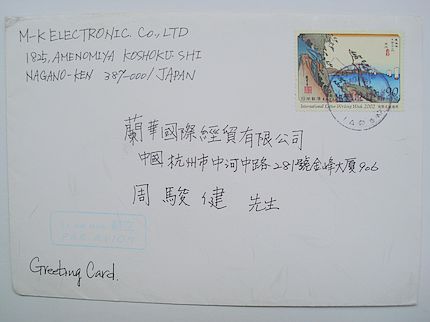 M-K ELECTRONIC CO., LTD
1825, AMENOMIYA KOSHOKU-SHI
NAGANO-KEN 387-0001 JAPAN
90
International Letter Writing Week 2002
JAPAN
蘭華國際經貿有限公司
中國 杭州市中河中路281號金峰大厦906
周駿健 先生
PAR AVION
Greeting Card.